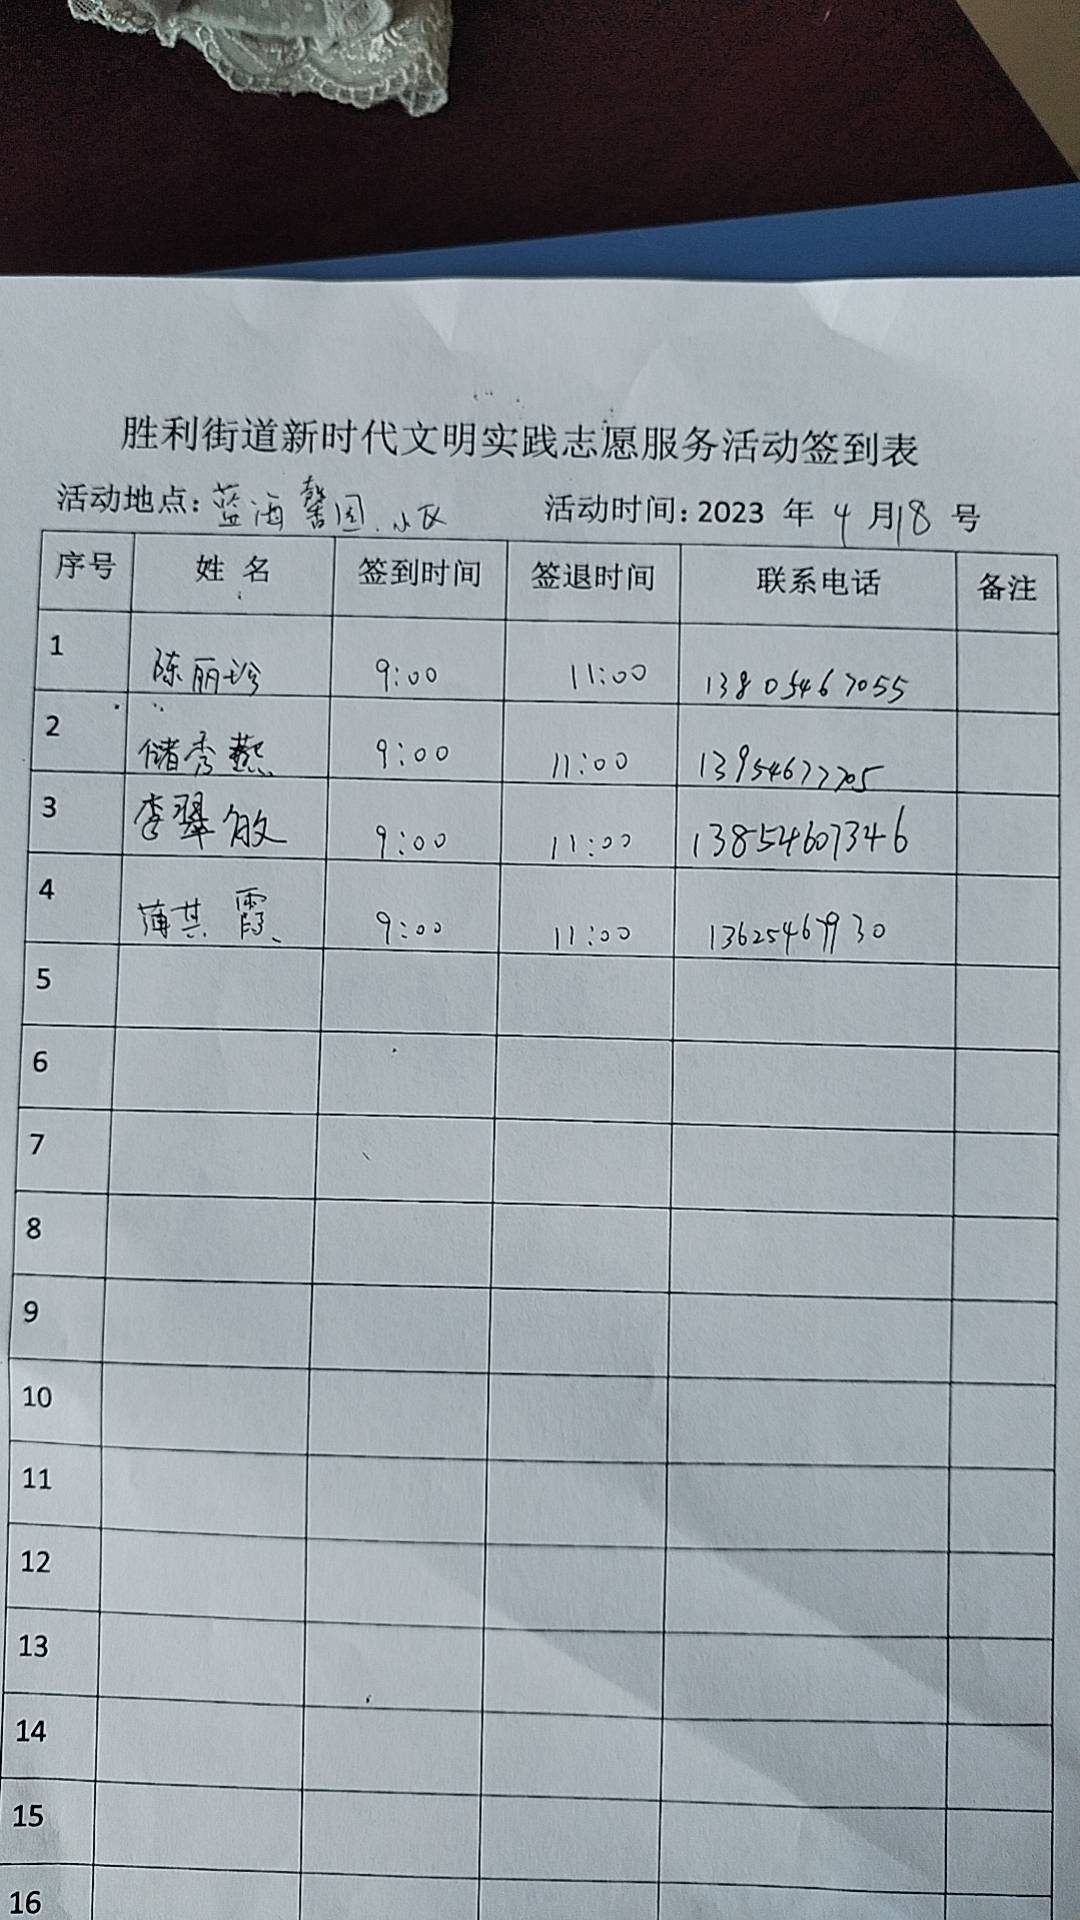 胜利街道新时代文明实践志愿服务活动签到表
活动地点:蓝海馨园小区 活动时间:2023 年 4 月 18 号
序号 姓名 签到时间 签退时间 联系电话 备注
1 陈丽珍 9:00 11:00 13805467055
2 储秀燕 9:00 11:00 13954677705
3 李翠敏 9:00 11:00 13854607346
4 薄其霞 9:00 11:00 13625467930
5
6
7
8
9
10
11
12
13
14
15
16